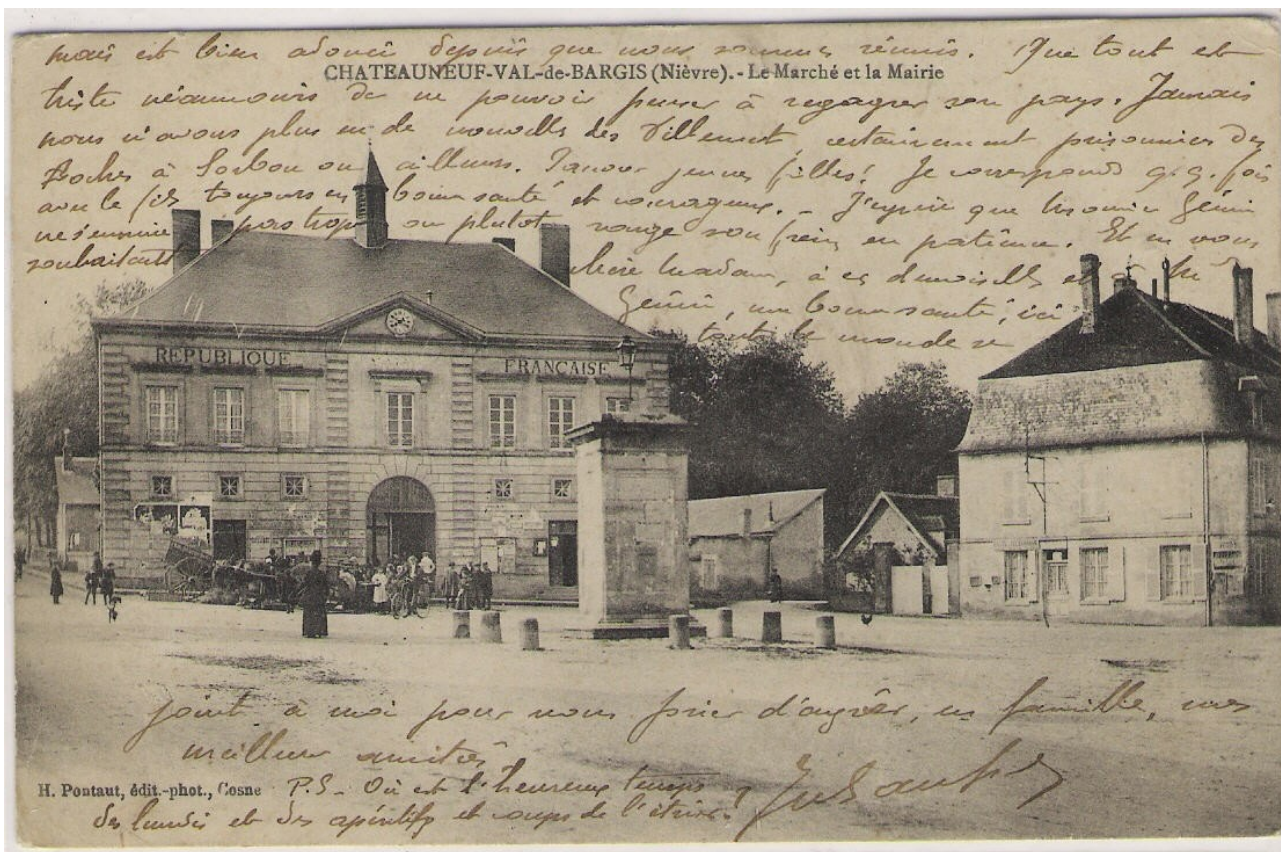 mais est bien adouci depuis que nous sommes réunis. Que tout est
CHATEAUNEUF-VAL-de-BARGIS (Nièvre). - Le Marché et la Mairie
triste néanmoins de ne pouvoir penser à regagner son pays. Jamais
nous n'avons plus eu de nouvelles des Villement, certainement prisonniers des
Boches à Sorbon ou ailleurs. Pauvres jeunes filles! Je corresponds q.q. fois
avec le fils toujours en bonne santé et courageux. - J'espère que Monsieur Génin
ne s'ennuie pas trop ou plutôt ronge son frein en patience. Et en vous
souhaitant chère Madame, à ces demoiselles et à Mr
Génin, une bonne santé, ici
tout le monde se
REPUBLIQUE FRANÇAISE
joint à moi pour vous prier d'agréer, en famille, nos
meilleures amitiés
H. Pontaut, édit.-phot., Cosne
P.S. - Où est l'heureux temps
des lundis et des apéritifs et coups de l'étrier?